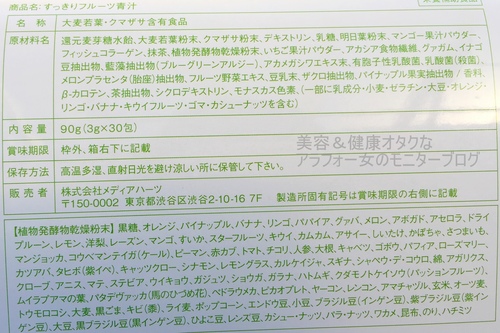 商品名：すっきりフルーツ青汁
名　称　大麦若葉・クマザサ含有食品
原材料名　還元麦芽糖水飴、大麦若葉粉末、クマザサ粉末、デキストリン、乳糖、明日葉粉末、マンゴー果汁パウダー、
フィッシュコラーゲン、抹茶、植物発酵物乾燥粉末、いちご果汁パウダー、アカシア食物繊維、グァガム、イナゴ
豆抽出物、藍藻抽出物（ブルーグリーンアルジー）、アカメガシワエキス末、有胞子性乳酸菌、乳酸菌（殺菌）、
メロンプラセンタ（胎座）抽出物、フルーツ野菜エキス、豆乳末、ザクロ抽出物、パイナップル果実抽出物／香料、
β-カロテン、茶抽出物、シクロデキストリン、モナスカス色素、（一部に乳成分・小麦・ゼラチン・大豆・オレンジ・
リンゴ・バナナ・キウイフルーツ・ゴマ・カシューナッツを含む）
内容量　90g（3g×30包）
賞味期限　枠外、箱右下に記載
保存方法　高温多湿、直射日光を避け涼しい所に保管して下さい。
販売者　株式会社メディアハーツ
〒150-0002　東京都渋谷区渋谷2-10-16 7F　製造所固有記号は賞味期限の右側に記載
美容＆健康オタクな
アラフォー女のモニターブログ
【植物発酵物乾燥粉末】黒糖、オレンジ、パイナップル、バナナ、リンゴ、パパイア、グァバ、メロン、アボガド、アセロラ、ドライ
プルーン、レモン、洋梨、レーズン、マンゴ、すいか、スターフルーツ、キウイ、カムカム、アサイー、しいたけ、かぼちゃ、さつまいも、
マンジョッカ、コウベマンテイガ（ケール）、ピーマン、赤カブ、トマト、チコリ、人参、大根、キャベツ、ゴボウ、パフィア、ローズマリー、
カツアバ、タヒボ（紫イペ）、キャッツクロー、シナモン、レモングラス、カルケイジャ、スギナ、シャペウ・デ・コウロ、綿、アガリクス、
クローブ、アニス、マテ、ステビア、ウイキョウ、ガジュツ、ショウガ、ガラナ、ハトムギ、クダモノトケイソウ（パッションフルーツ）、
ムイラプアマの葉、パタデヴァッカ（馬のひづめ花）、ペドラウメカ、ピカオプレト、ヤーコン、レンコン、アマチャヅル、玄米、オリーブ、
トウモロコシ、大麦、黒ごま、キビ（黍）、ライ麦、ポップコーン、エンドウ豆、小豆、ブラジル豆（インゲン豆）、紫ブラジル豆（紫イン
ゲン豆）、大豆、黒ブラジル豆（黒インゲン豆）、ひよこ豆、レンズ豆、カシューナッツ、パラ・ナッツ、ワカメ、昆布、のり、ハチミツ